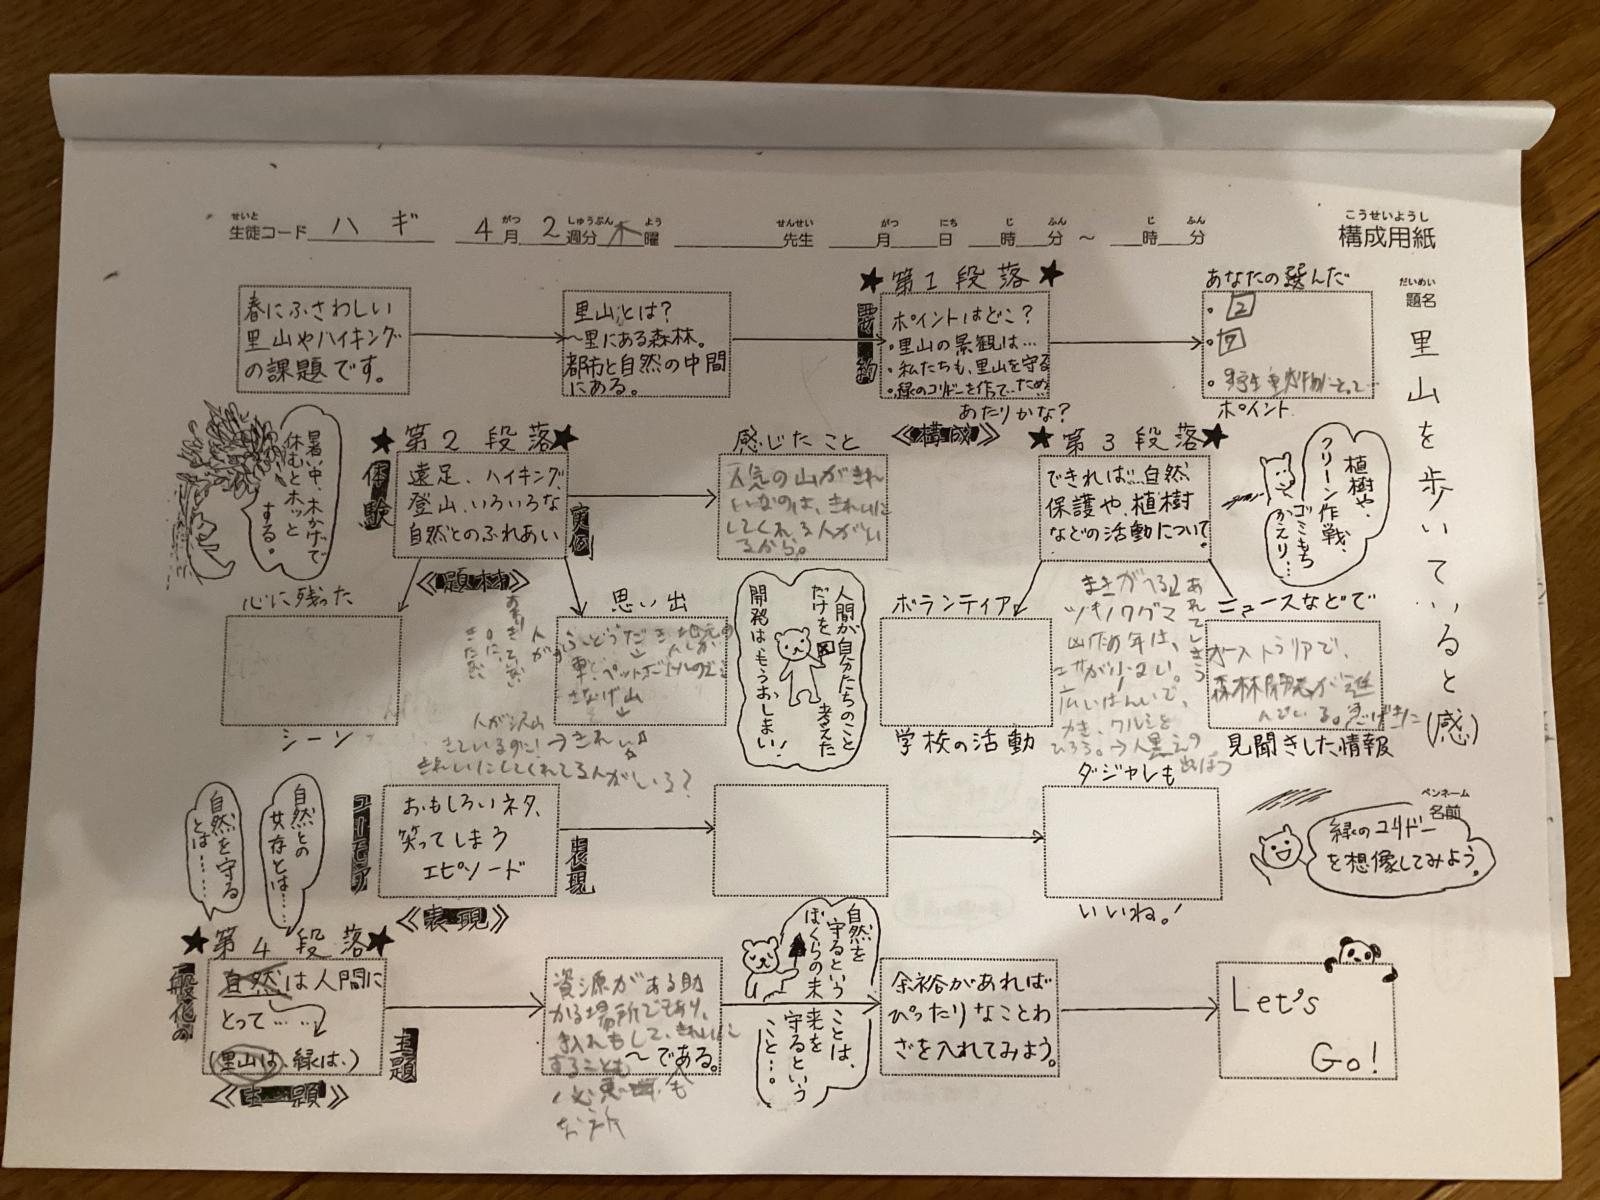 せいと がつ しゅうぶん よう せんせい がつ にち じ ふん じ ふん
生徒コード ハギ 4月 2週分 木曜 先生 月 日 時 分 ～ 時 分
こうせいようし
構成用紙
だいめい
題名
里山を歩いていると(感)
春にふさわしい
里山やハイキング
の課題です。
里山とは?
～里にある森林。
都市と自然の中間
にある。
★第1段落★
要約
ポイントはどこ?
・里山の景観は…
・私たちも、里山を守る
・緑のコリドーを作って…ため
あたりかな?
《構成》
あなたの選んだ
・2
・9
・野生動物にとって…
ポイント
暑い中、木かげで
休むとホッと
する。
★第2段落★
体験
遠足、ハイキング、
登山、いろいろな
自然とのふれあい
実例
《題材》
感じたこと
人気の山がきれ
いなのは、きれいに
してくれる人がい
るから。
★第3段落★
できれば…自然
保護や、植樹
などの活動について。
植樹や、
クリーン作戦、
ゴミもち
かえり…
心に残った
シーン
思い出
さなげ山
人が沢山
きているのに!→きれい
きれいにしてくれてる人がいる?
人間が自分たちのこと
だけを考えた
開発は、もうおしまい!
ボランティア
学校の活動
ツキノワグマ
凶作の年は、
エサが少ない。
広いはんいで、
かき、クルミを
ひろう。→人里への
出ぼつ
ニュースなどで
オーストラリアで、
森林開発が進
んでいる。
見聞きした情報
ペンネーム
名前
自然を守る
とは……
自然との
共存とは……
ユーモア
おもしろいネタ、
笑ってしまう
エピソード
表現
《表現》
ダジャレも
いいね!
緑のコリドー
を想像してみよう。
★第4段落★
一般化の
自然は人間に
とって……
(里山は、緑は、)
主題
《主題》
資源がある助
かる場所でもあり、
手入れもして、きれいに
することも
必要
な所
～である。
自然を
守るという
ことは、
ぼくらの未
来を
守るという
こと…。
余裕があれば
ぴったりなことわ
ざを入れてみよう。
Let's
Go!